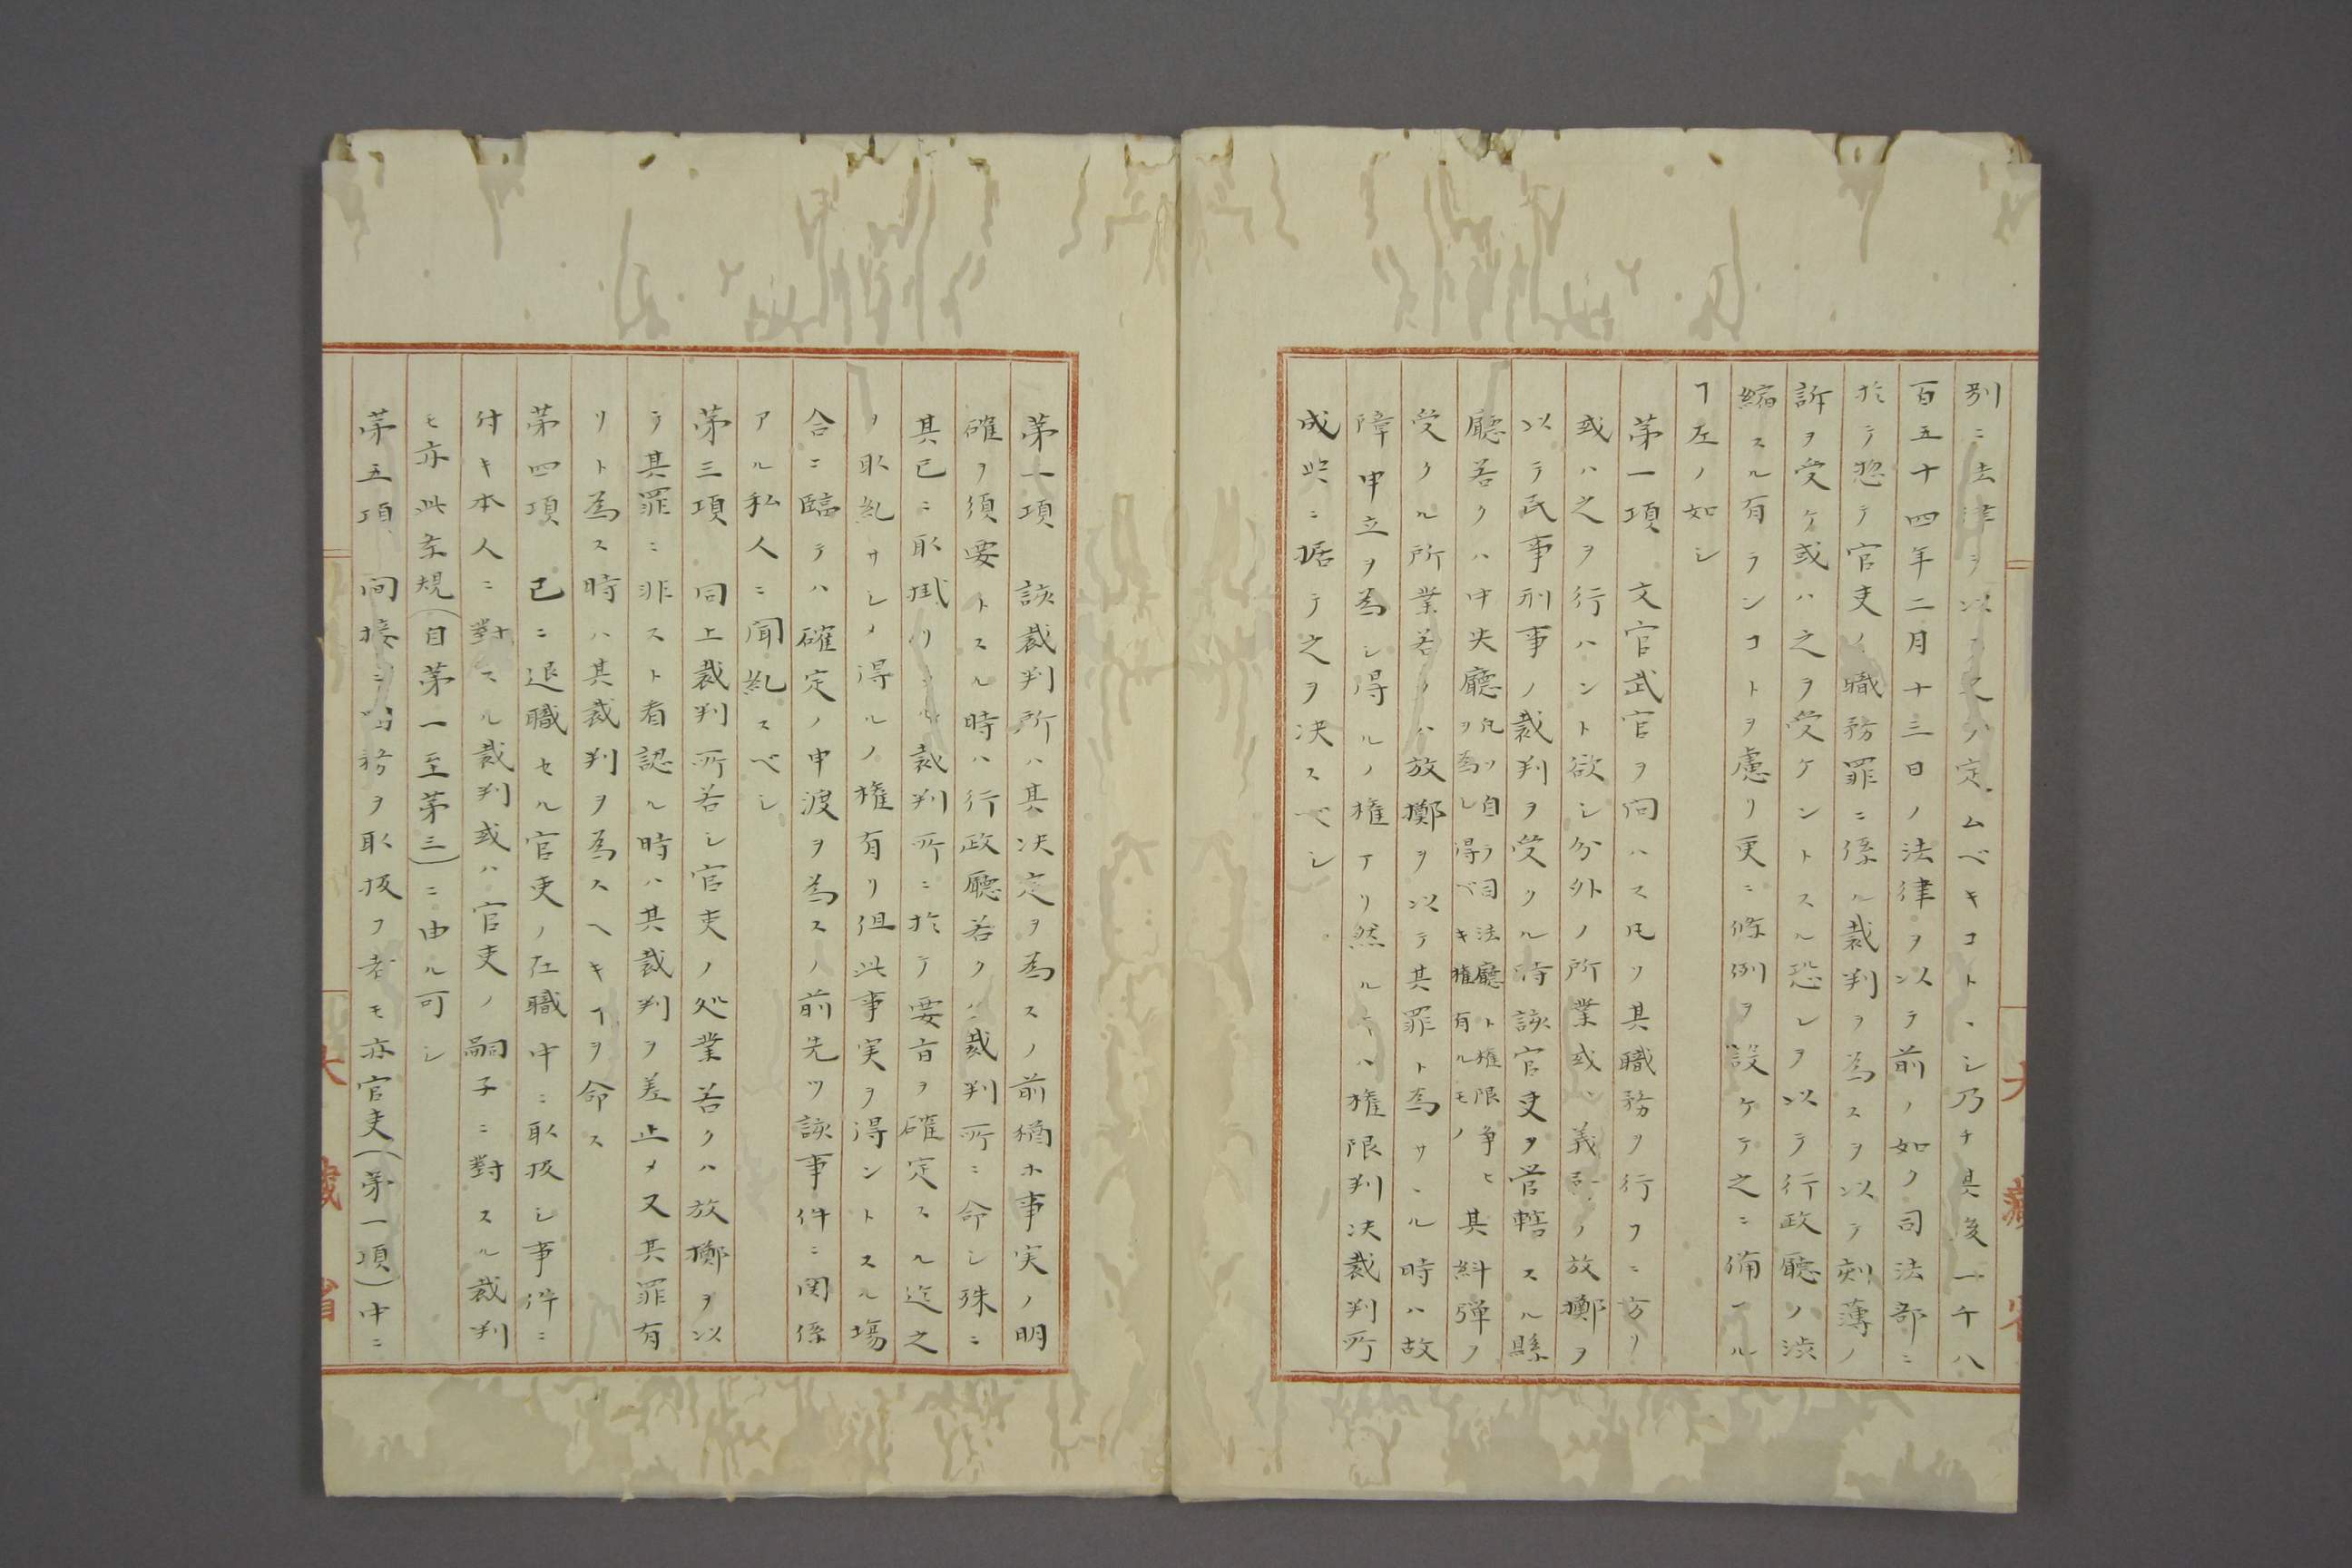 別ニ法律ヲ以テ之ヲ定ムベキコトヽシ乃チ其後一千八
百五十四年二月十三日ノ法律ヲ以テ前ノ如ク司法部ニ
於テ惣テ官吏ノ職務罪ニ係ル裁判ヲ為スヲ以テ刻薄ノ
訴ヲ受ケ或ハ之ヲ受ケントスル恐レヲ以テ行政廳ノ渋
縮スル有ランコトヲ慮リ更ニ條例ヲ設ケテ之ニ備フル
ヿ左ノ如シ
苐一項 文官武官ヲ問ハス凡ソ其職務ヲ行フニ方リ
或ハ之ヲ行ハント欲シ分外ノ所業或ハ義務ノ放擲ヲ
以テ民事刑事ノ裁判ヲ受クル時該官吏ヲ菅轄スル縣
廳若クハ中央廳凢ソ自ラ司法廳ト権限争ヒヲ為シ得ベキ権有ルモノ其糾弾ヲ
受クル所業若クハ放擲ヲ以テ其罪ト為サヽル時ハ故
障申立ヲ為シ得ルノ権アリ然ルヿハ権限判决裁判所
成典ニ据テ之ヲ决スベシ
苐二項 該裁判所ハ其决定ヲ為スノ前猶ホ事実ノ明
確ヲ須要トスル時ハ行政廳若クハ裁判所ニ命シ殊ニ
其已ニ取掛リシ裁判所ニ於テ要旨ヲ確定スル迄之
ヲ取糺サシメ得ルノ権有リ但此事実ヲ得ントスル塲
合ニ臨テハ確定ノ申渡ヲ為スノ前先ツ該事件ニ関係
アル私人ニ聞糺スベシ
苐三項 同上裁判所若シ官吏ノ処業若クハ放擲ヲ以
テ其罪ニ非スト看認ル時ハ其裁判ヲ差止メ又其罪有
リト為ス時ハ其裁判ヲ為スヘキヿヲ命ス
苐四項 已ニ退職セル官吏ノ在職中ニ取扱シ事件ニ
付キ本人ニ對スル裁判或ハ官吏ノ嗣子ニ對スル裁判
モ亦此条規(自苐一至苐三)ニ由ル可シ
苐五項 間接ニ職務ヲ取扱フ者モ亦官吏(苐一項)中ニ
大藏省
大藏省